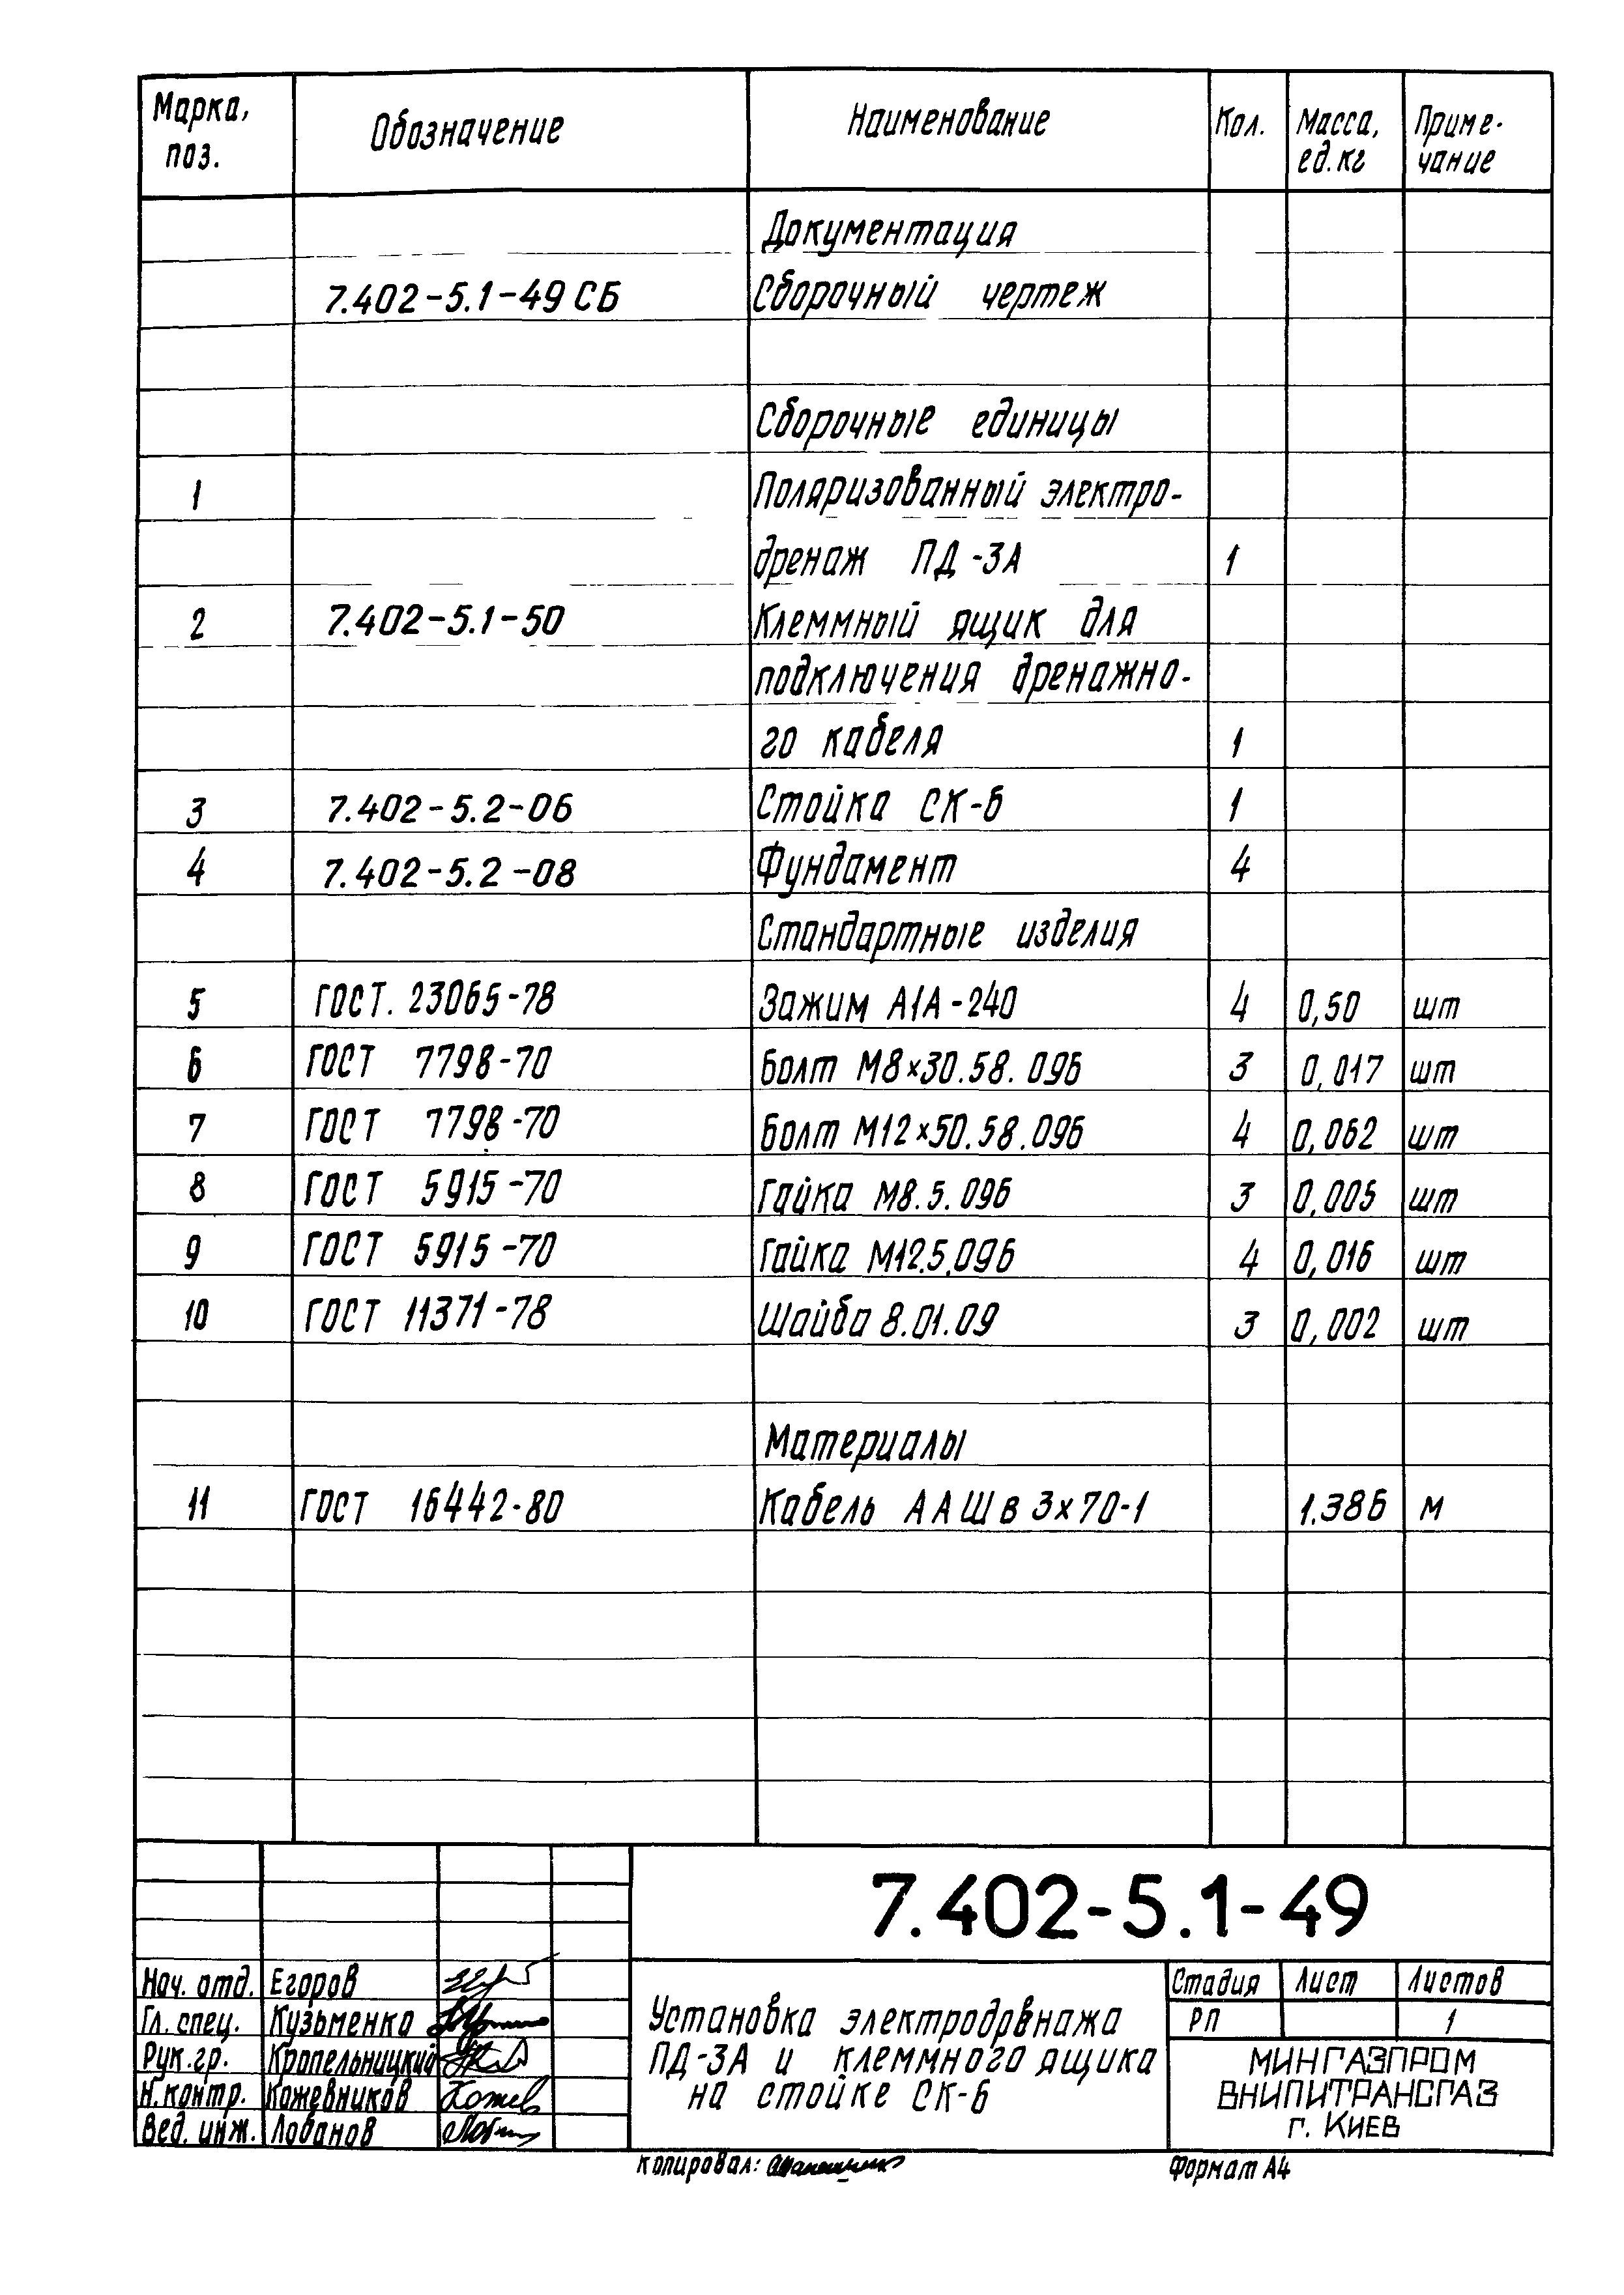 Марка, поз. Обозначение Наименование Кол. Масса, ед.кг Приме-чание
Документация
7.402-5.1-49 СБ Сборочный чертеж
Сборочные единицы
1 Поляризованный электро-
дренаж ПД-3А 1
2 7.402-5.1-50 Клеммный ящик для
подключения дренажно-
го кабеля 1
3 7.402-5.2-06 Стойка СК-6 1
4 7.402-5.2-08 Фундамент 4
Стандартные изделия
5 ГОСТ. 23065-78 Зажим А1А-240 4 0,50 шт
6 ГОСТ 7798-70 Болт М8×30.58.096 3 0,017 шт
7 ГОСТ 7798-70 Болт М12×50.58.096 4 0,062 шт
8 ГОСТ 5915-70 Гайка М8.5.096 3 0,005 шт
9 ГОСТ 5915-70 Гайка М12.5.096 4 0,016 шт
10 ГОСТ 11371-78 Шайба 8.01.09 3 0,002 шт
Материалы
11 ГОСТ 16442-80 Кабель ААШв 3х70-1 1.386 м
7.402-5.1-49
Нач. отд. Егоров
Гл. спец. Кузьменко
Рук.гр. Кропельницкий
Н.контр. Кожевников
Вед. инж. Лобанов
Установка электродрвнажа
ПД-3А и клеммного ящика
на стойке СК-6
Стадия Лист Листов
РП 1
МИНГАЗПРОМ
ВНИПИТРАНСГАЗ
г. КИЕВ
копировал:
Формат А4